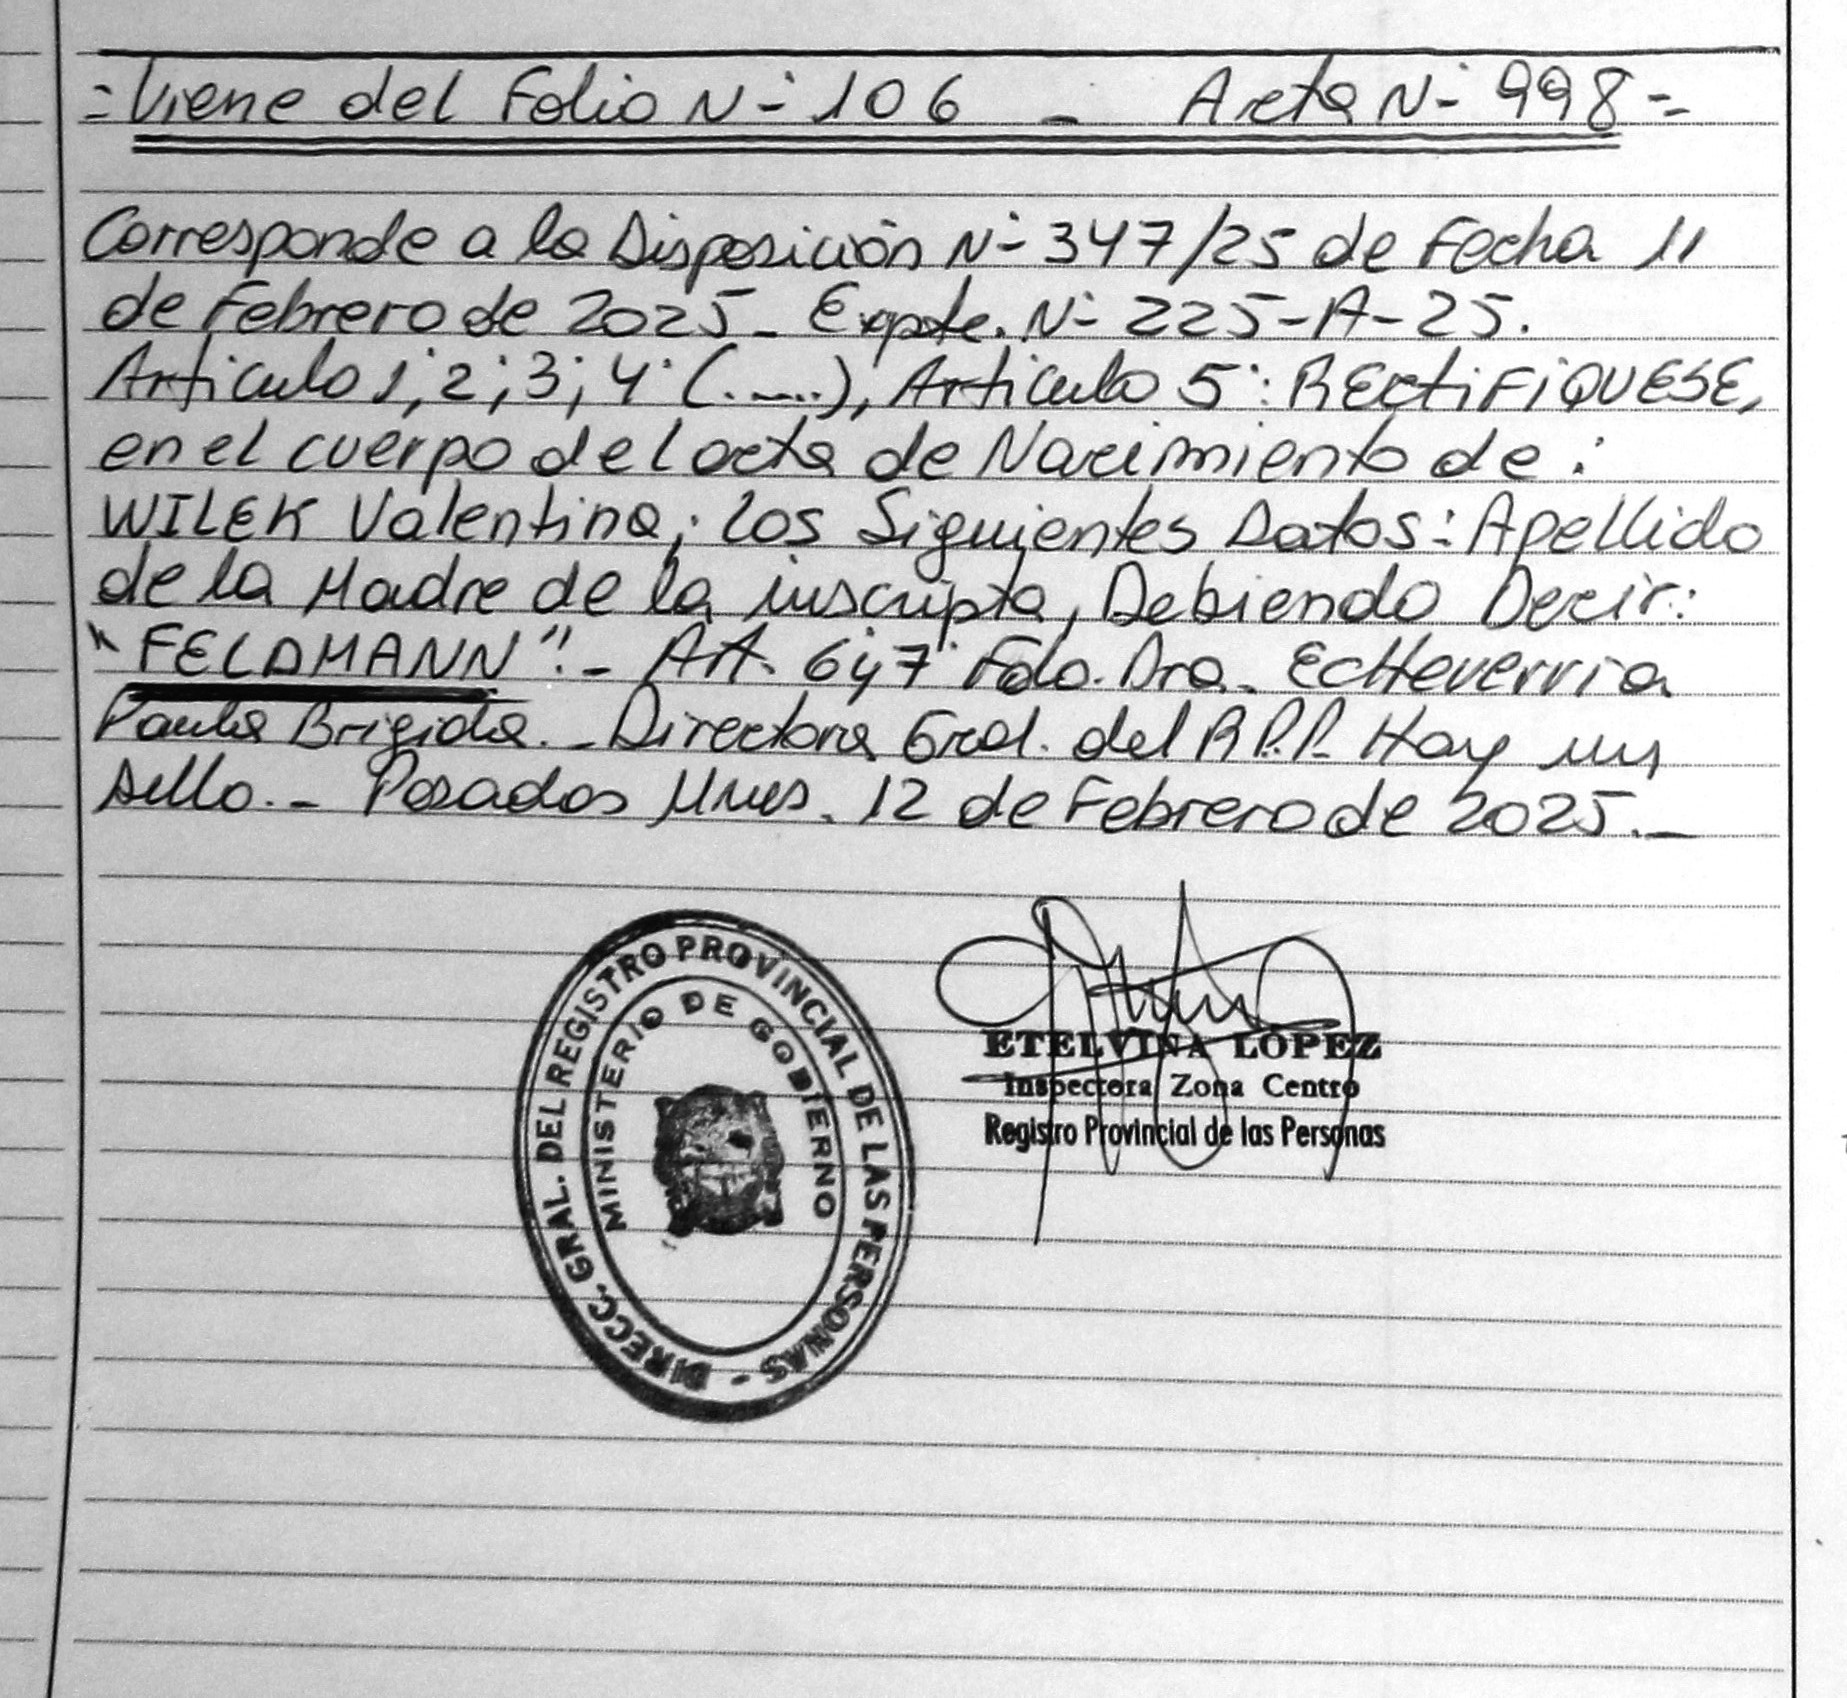 =Viene del Folio N- 106 - Acta N- 998=
Corresponde a la Disposición N- 347/25 de Fecha 11
de Febrero de 2025- Expte. N- 225-A-25.
Artículo 1; 2; 3; 4° (.....), Artículo 5°: RECTIFIQUESE,
en el cuerpo del acta de Nacimiento de:
WILEK Valentina; los Siguientes Datos: Apellido
de la Madre de la inscripta, Debiendo Decir:
"FELDMANN".- Art. 6 y 7° Fdo. Dra. Echeverria
Paula Brigida.-Directora Gral. del R.P.P. Hay un
sello.- Posadas Mnes. 12 de Febrero de 2025.-
DIRECC. GRAL. DEL REGISTRO PROVINCIAL DE LAS PERSONAS -
MINISTERIO DE GOBIERNO
ETELVINA LOPEZ
Inspectora Zona Centro
Registro Provincial de las Personas